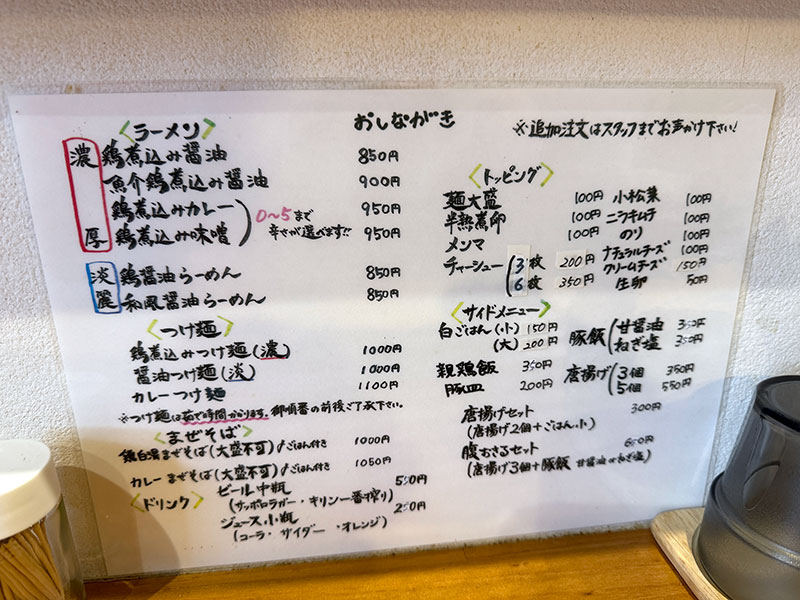 おしながき
※追加注文はスタッフまでお声がけ下さい!
〈ラーメン〉
濃厚
鶏煮込み醤油 850円
魚介鶏煮込み醤油 900円
鶏煮込みカレー 950円
鶏煮込み味噌 950円
0〜5まで
辛さが選べます!!
淡麗
鶏醤油らーめん 850円
和風醤油らーめん 850円
〈つけ麺〉
鶏煮込みつけ麺(濃) 1000円
醤油つけ麺(淡) 1000円
カレーつけ麺 1100円
※つけ麺は茹で時間かかります。御順番の前後ご了承下さい。
〈まぜそば〉
鶏白湯まぜそば(大盛不可)ごはん付き 1000円
カレーまぜそば(大盛不可)ごはん付き 1050円
〈ドリンク〉
ビール中瓶 550円
(サッポロラガー・キリン一番搾り)
ジュース小瓶 250円
(コーラ・サイダー・オレンジ)
〈トッピング〉
麺大盛 100円
半熟煮卵 100円
メンマ 100円
チャーシュー
3枚 200円
6枚 350円
小松菜 100円
ニラキムチ 100円
のり 100円
ナチュラルチーズ 100円
クリームチーズ 150円
生卵 50円
〈サイドメニュー〉
白ごはん(小) 150円
(大) 200円
親鶏飯 350円
豚皿 200円
豚飯
甘醤油 350円
ねぎ塩 350円
唐揚げ
3個 350円
5個 550円
唐揚げセット 300円
(唐揚げ2個+ごはん小)
腹おさるセット 650円
(唐揚げ3個+豚飯 甘醤油orねぎ塩)